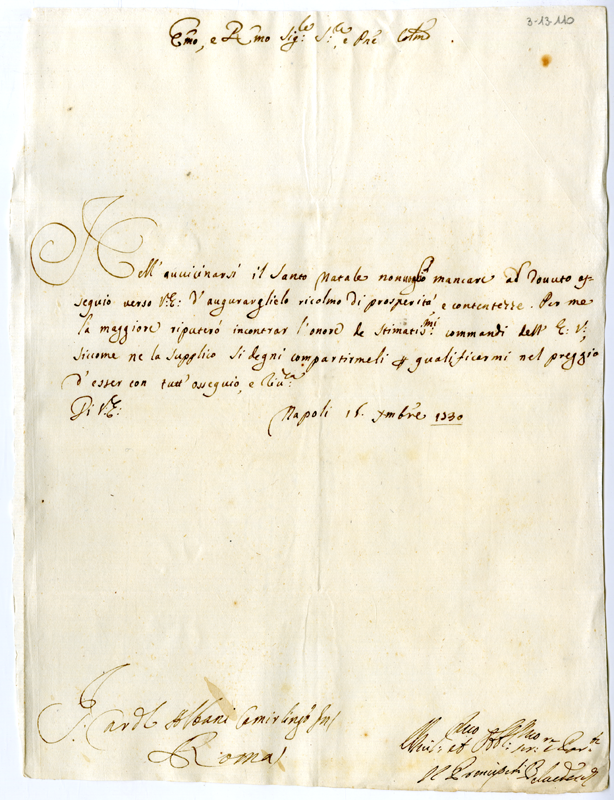 3-13-110
Emo, e Rmo Sig:re S:re, e Pne Colmo.
Nell' avvicinarsi il Santo Natale non voglio mancare al dovuto os-
sequio verso V:E: d'augurarglielo ricolmo di prosperità e contentezze. Per me
la maggiore riputerò incontrar l'onore de stimatis:mi commandi dell' E: V:,
siccome ne la supplico si degni compartirmeli per qualificarmi nel preggio
d'esser con tutt' ossequio, e
Di V:E:
Napoli 16. Xmbre 1730
S: Card: Albani Camerlingo
Roma
Divo: et Obl: ser:
Il Prencipe di